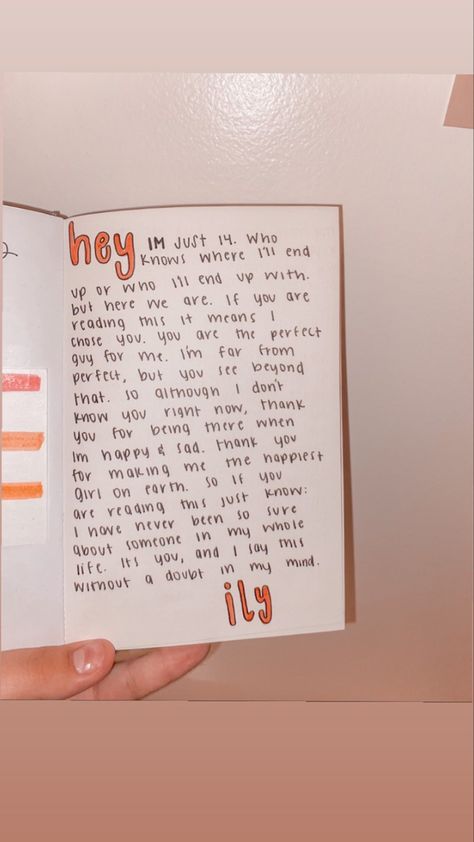 hey IM JUST 14. WHO
KNOWS WHERE I'll END
UP OR WHO I'll END UP WITH.
BUT HERE WE ARE. IF YOU ARE
READING THIS IT MEANS I
CHOSE YOU. YOU ARE THE PERFECT
GUY FOR ME. I'M FAR FROM
PERFECT, BUT YOU SEE BEYOND
THAT. SO ALTHOUGH I DON'T
KNOW YOU RIGHT NOW, THANK
YOU FOR BEING THERE WHEN
IM HAPPY & SAD. THANK YOU
FOR MAKING ME THE HAPPIEST
GIRL ON EARTH. SO IF YOU
ARE READING THIS JUST KNOW:
I HAVE NEVER BEEN SO SURE
ABOUT SOMEONE IN MY WHOLE
LIFE. ITS YOU, AND I SAY THIS
WITHOUT A DOUBT IN MY MIND.
ily